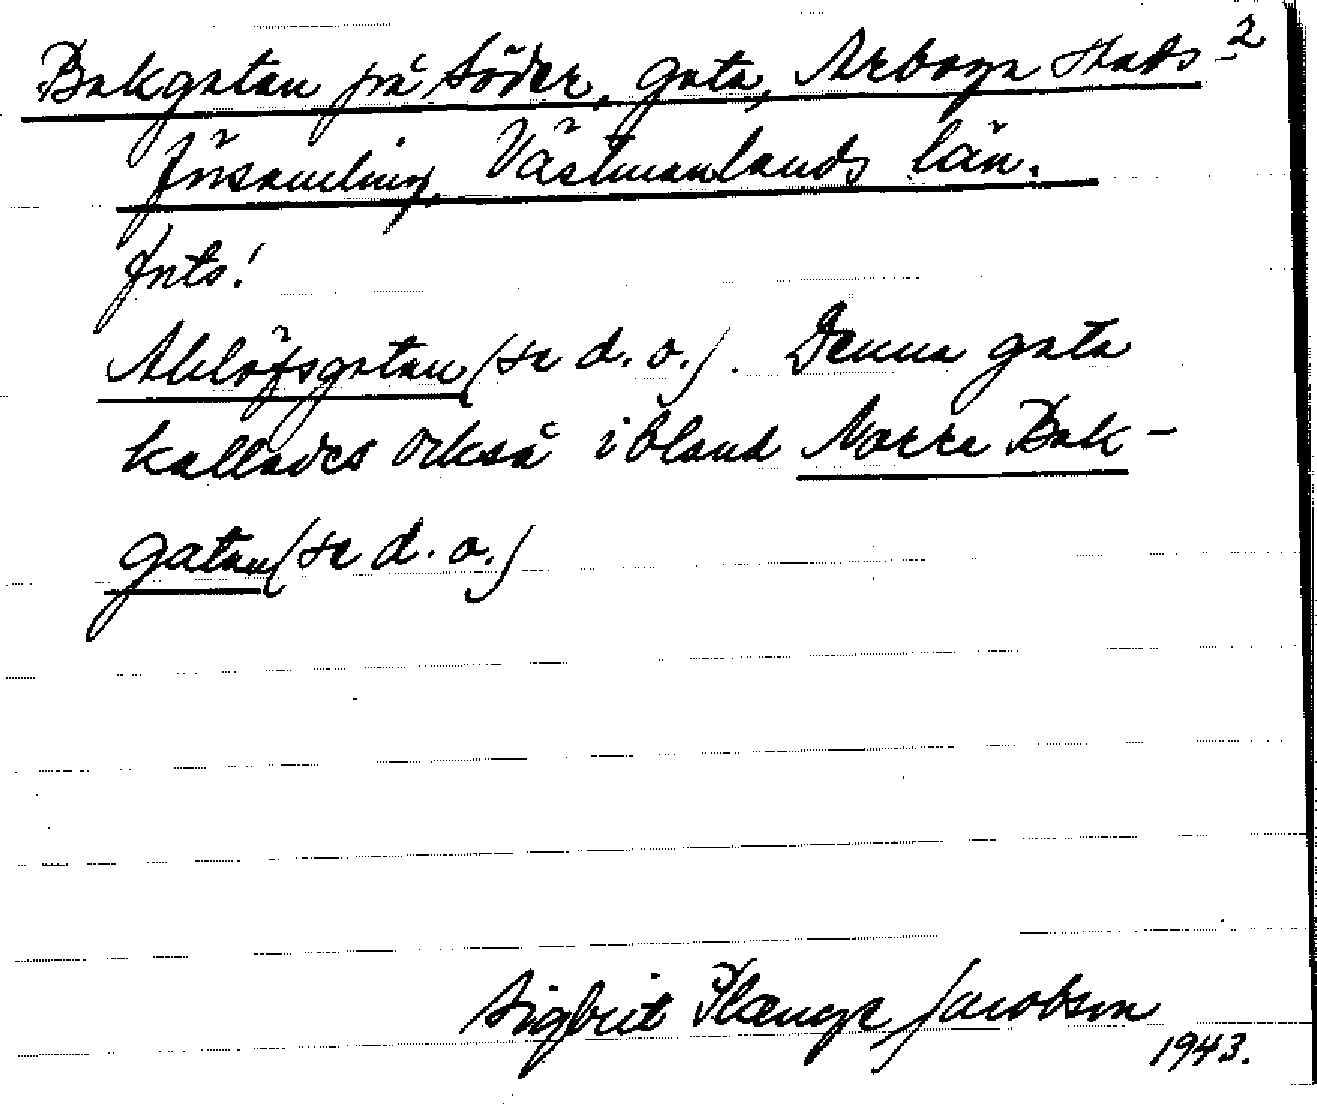 Bakgatan på Söder, gata, Arboga stads- 2
församling, Västmanlands län.
forts!
Ahlöfsgatan (se d. o.). Denna gata
kallades också ibland Norra Bak-
gatan (se d. o.)
Sigbrit Plænge Jacobson
1943.